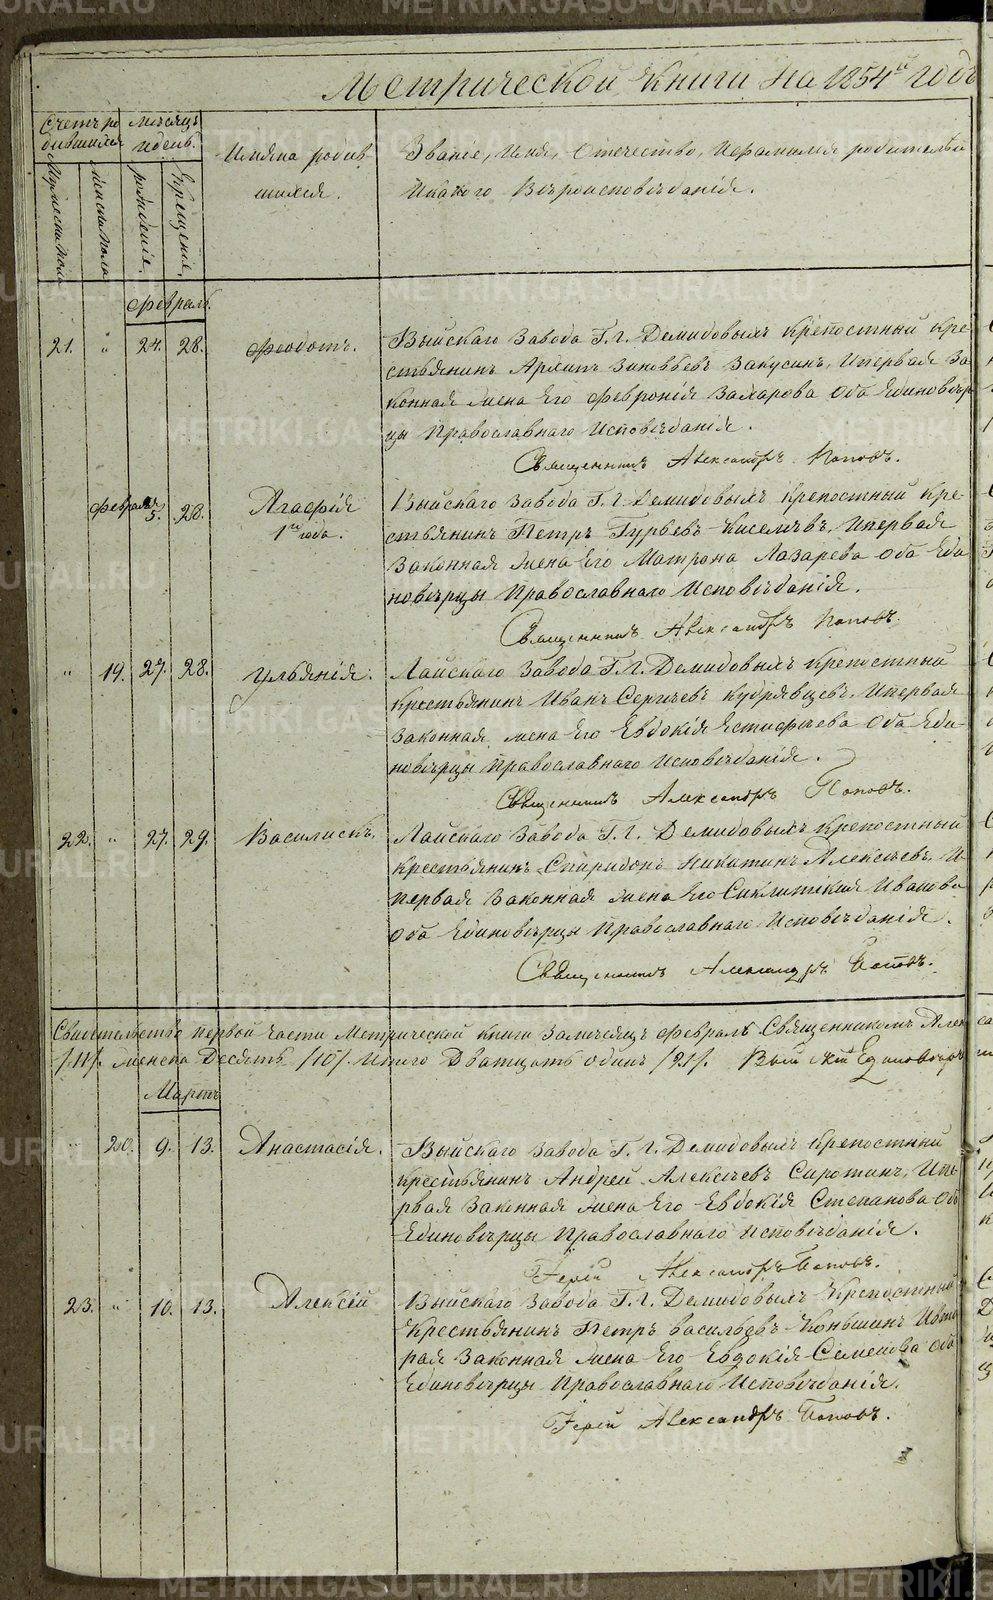 Метрической книги на 1854й годъ
Счетъ ро
дившихся
Мѣсяцъ
и день.
Мужеска пола
женска пола
рожденія.
Крещенія.
Имяна родив
шихся.
Званіе, Имя, Отечество, и фамилія родителей
и какого Вѣроисповѣданія.
Февраль.
21. " 24. 28. Феодотъ.
Выйскаго Завода Г. Г. Демидовыхъ крепостный кре-
стьянинъ Архипъ Зиновьевъ Закусинъ, и первая За
конная жена Его Февронія Захарова оба Единовѣр
цы Православнаго Исповѣданія.
Священникъ Александръ Поповъ.
февраль 5. 28. Агафія
1го года.
Выйскаго Завода Г. Г. Демидовыхъ крепостный кре-
стьянинъ Петръ Гурьевъ Киселевъ, и первая
Законная жена Его Матрона Лазарева оба Еди
новѣрцы Православнаго Исповѣданія.
Священникъ Александръ Поповъ.
" 19. 27. 28. Ульянія.
Лайскаго Завода Г. Г. Демидовыхъ крепостный
крестьянинъ Иванъ Сергѣевъ Кудрявцевъ, и первая
Законная жена Его Евдокія Естифѣева оба Еди-
новѣрцы Православнаго Исповѣданія.
Священникъ Александръ Поповъ.
22. " 27. 29. Василискъ.
Лайскаго Завода Г. Г. Демидовыхъ крепостный
крестьянинъ Спиридонъ Никитинъ Алексѣевъ, и
первая Законная жена Его Сиклитикія Иванова
оба Единовѣрцы Православнаго Исповѣданія.
Священникъ Александръ Поповъ.
первой части Метрической книги за мѣсяцъ февраль Священникомъ Алек
/11/. женска Десять /10/. Итого Дватцать одинъ /21/.
Мартъ
" 20. 9. 13. Анастасія.
Выйскаго Завода Г. Г. Демидовыхъ крепостный
крестьянинъ Андрей Алексѣевъ Сиротинъ, и пе-
рвая Законная жена Его Евдокія Степанова оба
Единовѣрцы Православнаго Исповѣданія.
Іерей Александръ Поповъ.
23. " 10. 13. Алексій
Выйскаго Завода Г. Г. Демидовыхъ крепостный
крестьянинъ Петръ Васильевъ Коньшинъ и вто
рая Законная жена Его Евдокія Семенова оба
Единовѣрцы Православнаго Исповѣданія.
Іерей Александръ Поповъ.
METRIKI.GASU-URAL.RU